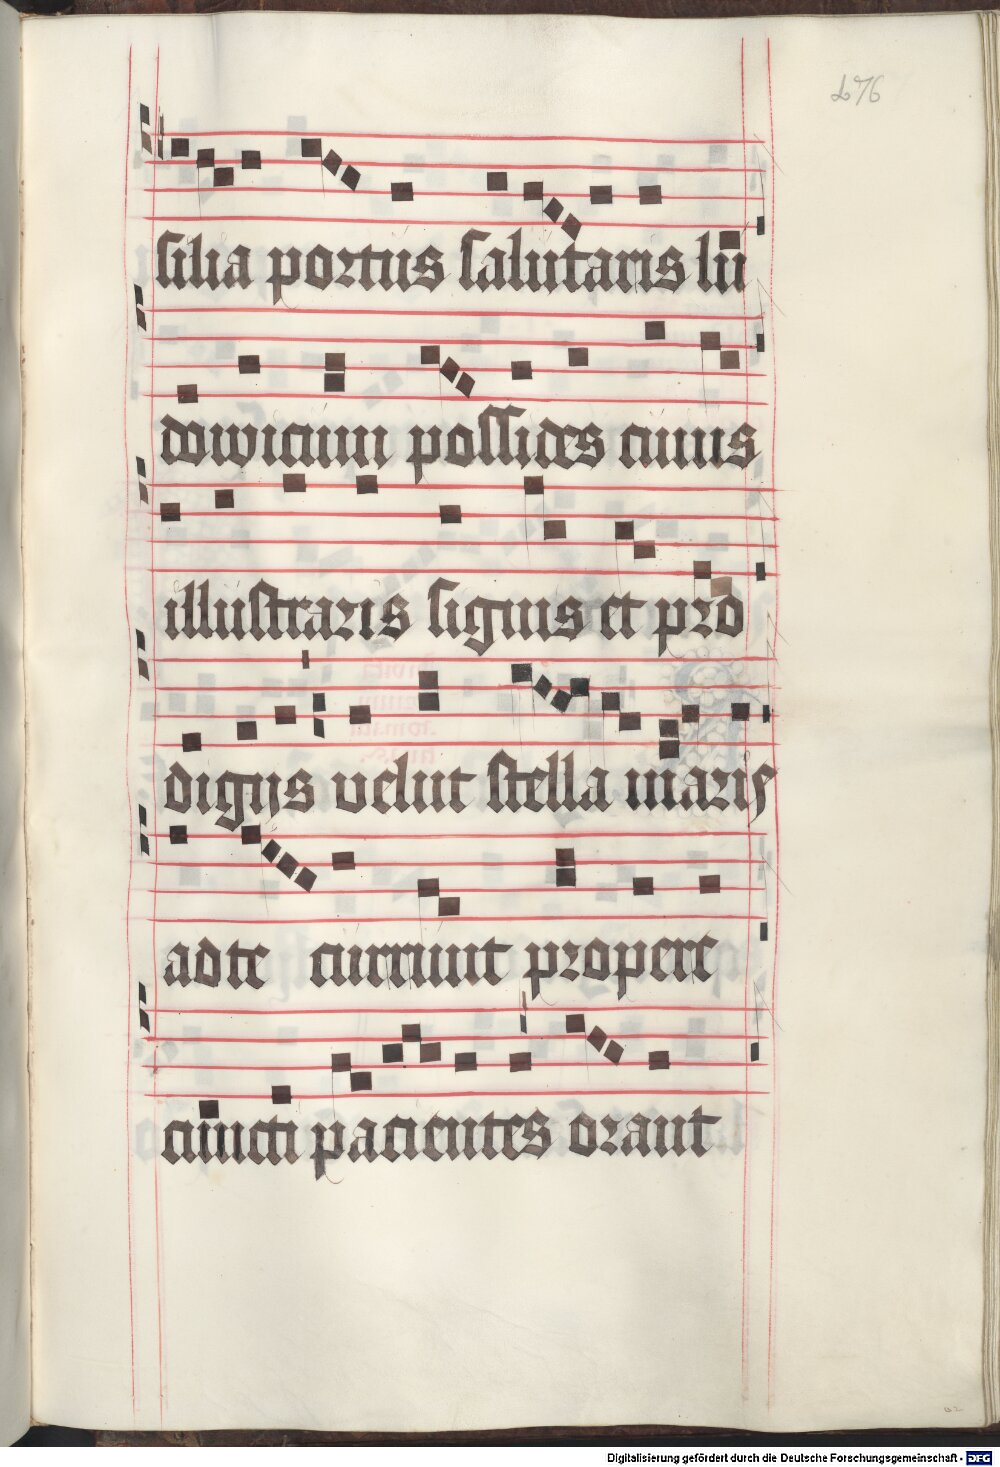 276
silia portus salutaris lu
dowicum possides cuius
illustraris signis et pro
digijs velut stella maris
ad te currunt propere
cuncti pacientes orant
Digitalisierung gefördert durch die Deutsche Forschungsgemeinschaft - DFG